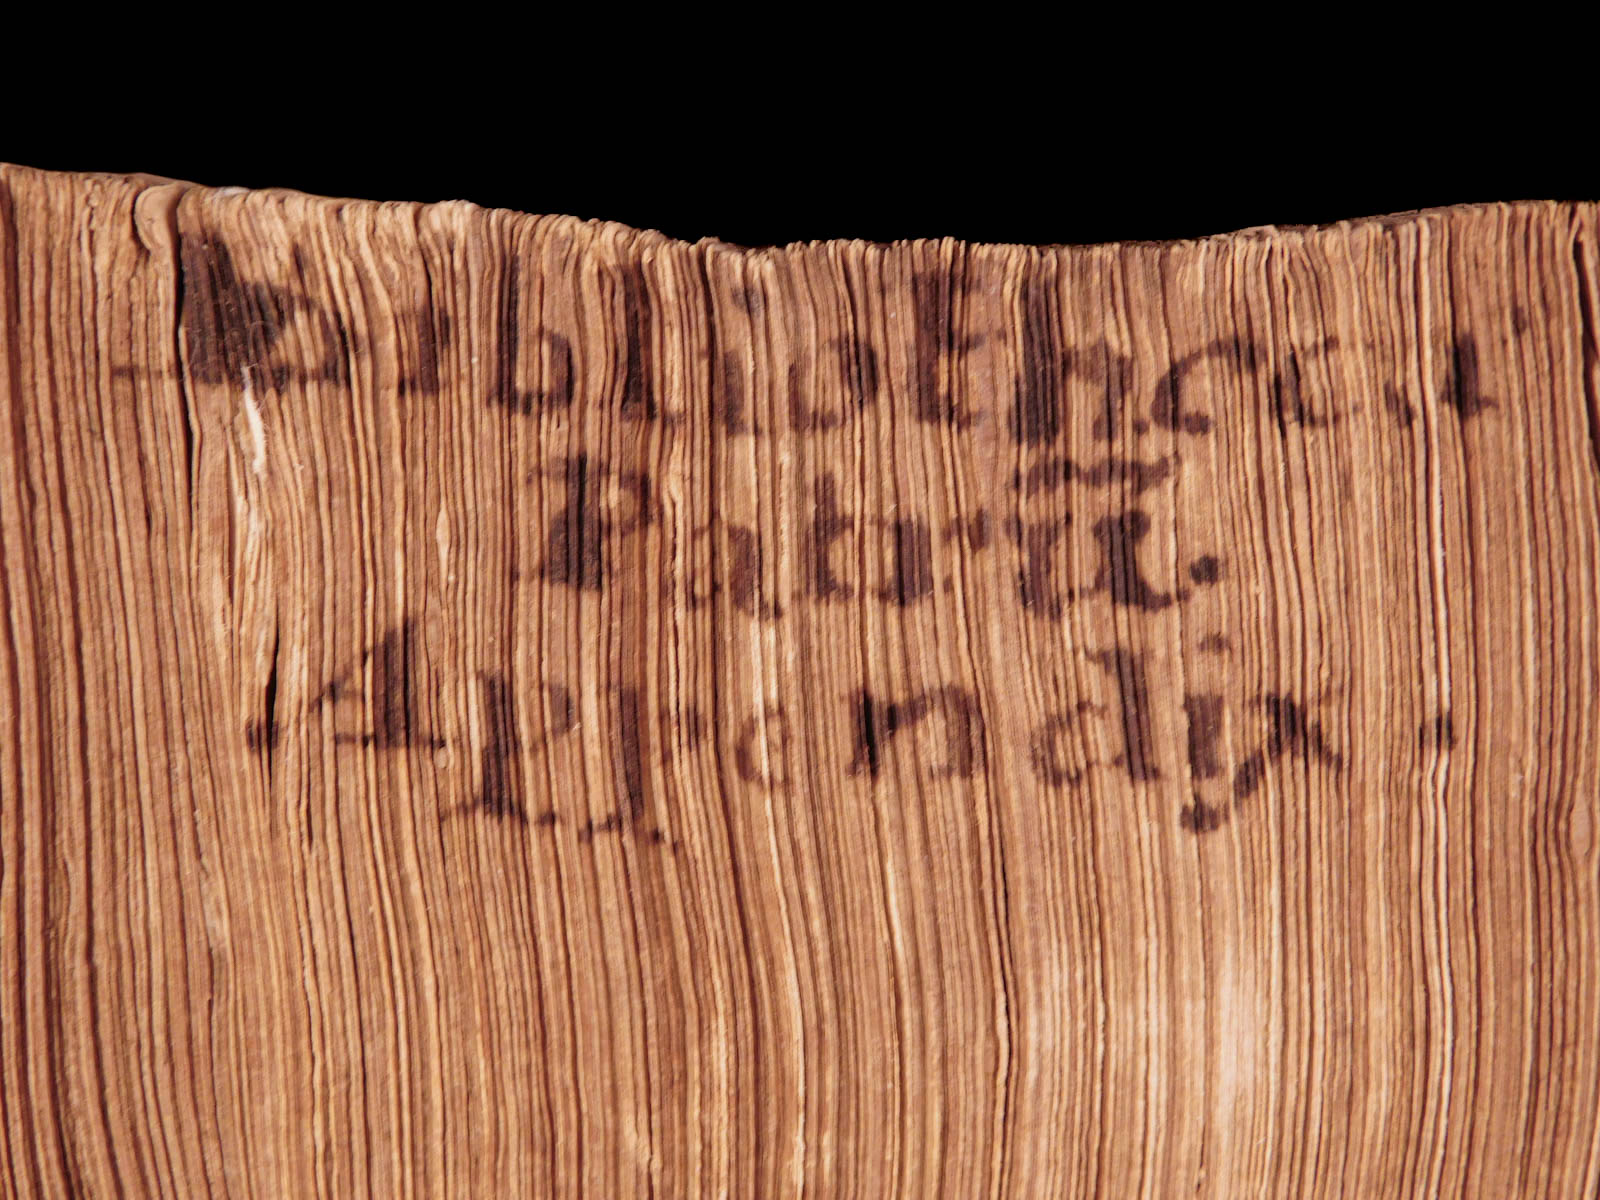 Bibliothecæ
Patrū.
Appendix.